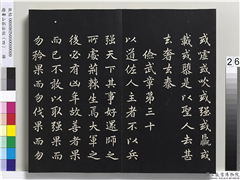 或歔或吹或强或羸或
載或隳是以聖人去甚
去奢去泰
儉武章第三十
以道佐人主者不以兵
强天下其事好還師之
所處荆棘生焉大軍之
後必有凶年故善者果
而已不敢以取强果而
勿矜果而勿伐果而勿
26